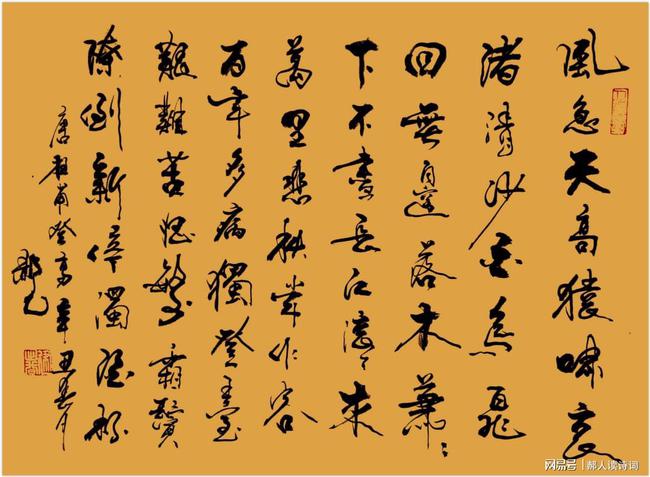 風急天高猿嘯哀
渚清沙白鳥飛
回無邊落木蕭〻
下不盡長江滾〻來
萬里悲秋常作客
百年多病獨登臺
艱難苦恨繁霜鬢
潦倒新停濁酒杯
唐杜甫登高辛丑春月
网易号 | 郝人读诗词